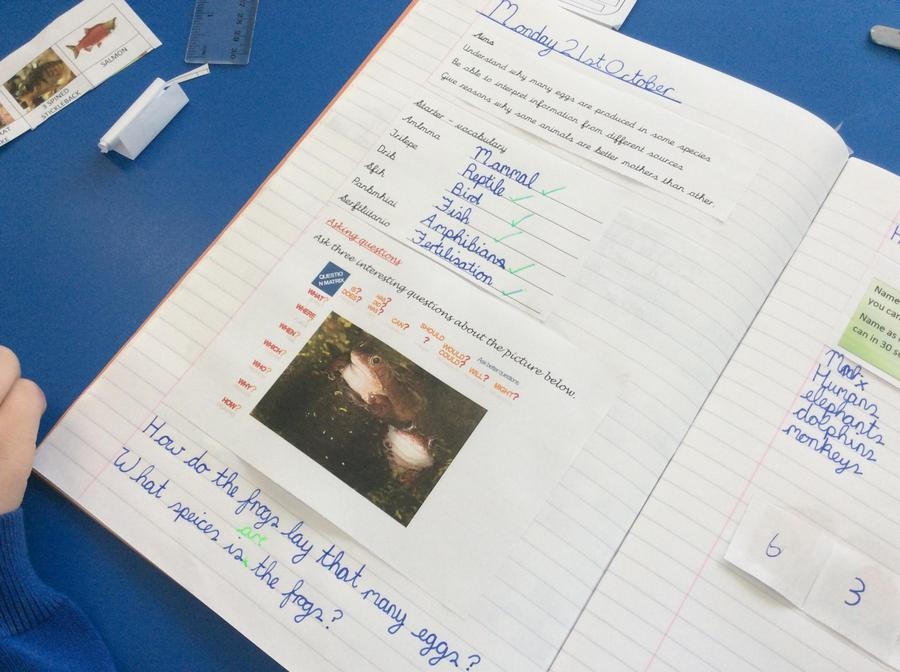 SALMON
3 SPINED
STICKLEBACK
Monday 21st October
Aims
Understand why many eggs are produced in some species
Be able to interpret information from different sources
Give reasons why some animals are better mothers than other.
Starter - vocabulary
Amlmma Mammal
Irtlepe Reptile
Drib Bird
Sfih Fish
Panbmhiai Amphibians
Serfililtanio Fertilisation
Asking questions
Ask three interesting questions about the picture below.
QUESTIO
N MATRIX
IS?
DOES?
HAS?
DID?
WAS?
CAN?
SHOULD
?
WOULD?
COULD?
WILL?
MIGHT?
Ask better questions
WHAT?
WHERE
WHEN?
WHICH?
WHO?
WHY?
HOW?
How do the frogs lay that many eggs?
are
What speices is the frogs?
Name
you can
Name as
can in 30 s
Humans
elephants
dolphins
monkeys
6 3